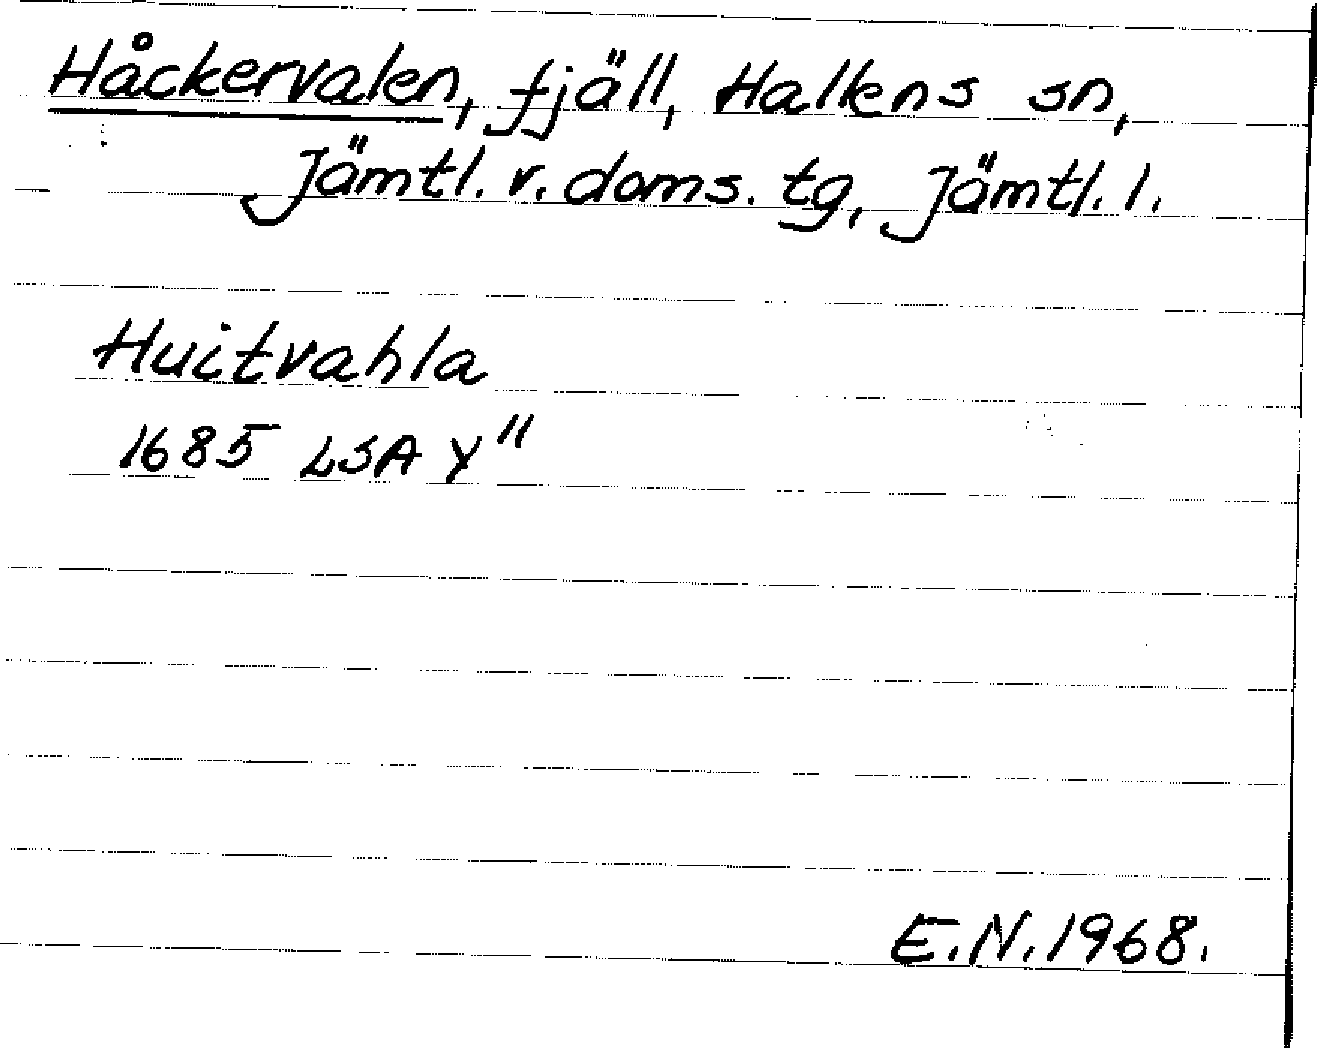 Håckervalen, fjäll, Hallens sn,
Jämtl. v. doms. tg, Jämtl. l.
Huitvahla
1685 LSA Y"
E.N. 1968.